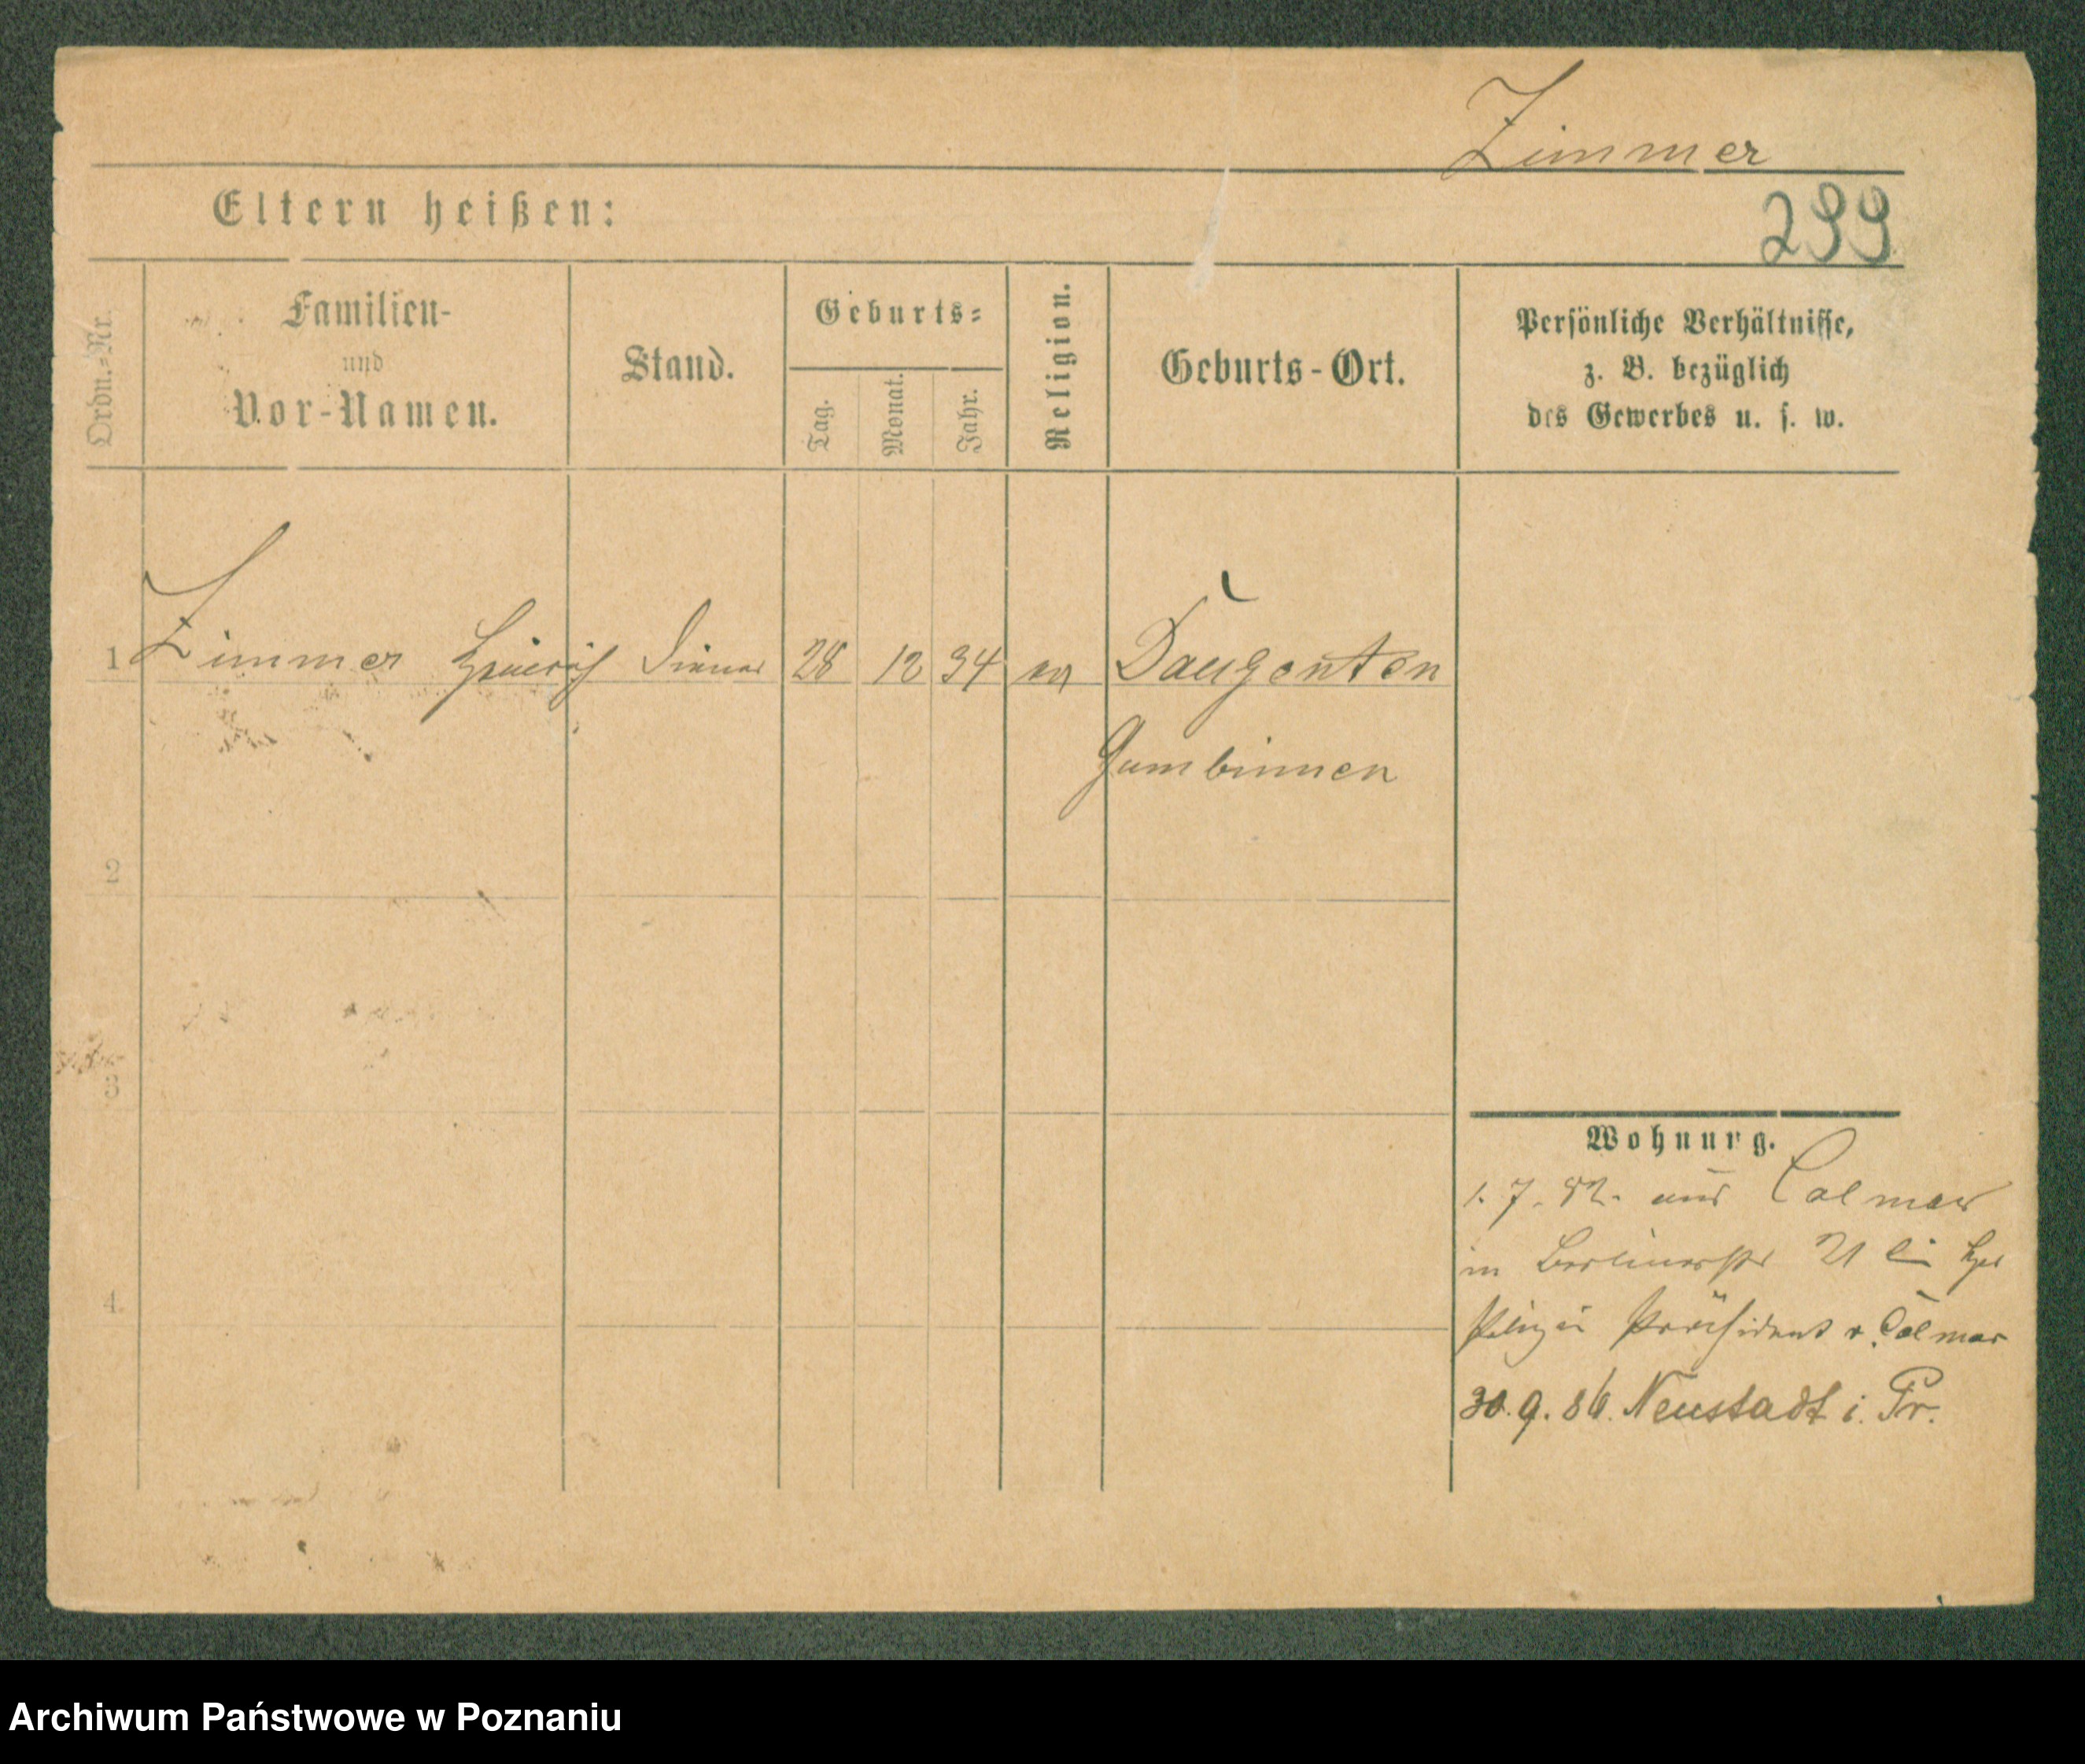 Zimmer
Eltern heißen:
299
Ordn.=Nr.
Familien-
und
Vor-Namen.
Stand.
Geburts=
Tag.
Monat.
Jahr.
Religion.
Geburts-Ort.
Persönliche Verhältnisse,
z. B. bezüglich
des Gewerbes u. s. w.
1 Zimmer Heinrich Diener 28 12 34 ev Daugenten
Gumbinnen
2
3
4.
Wohnung.
1. 7. 82. aus Colmar
in Berlinerstr 21 bei
Polizei Präsident v. Colmar
30. 9. 86. Neustadt i. Pr.
Archiwum Państwowe w Poznaniu